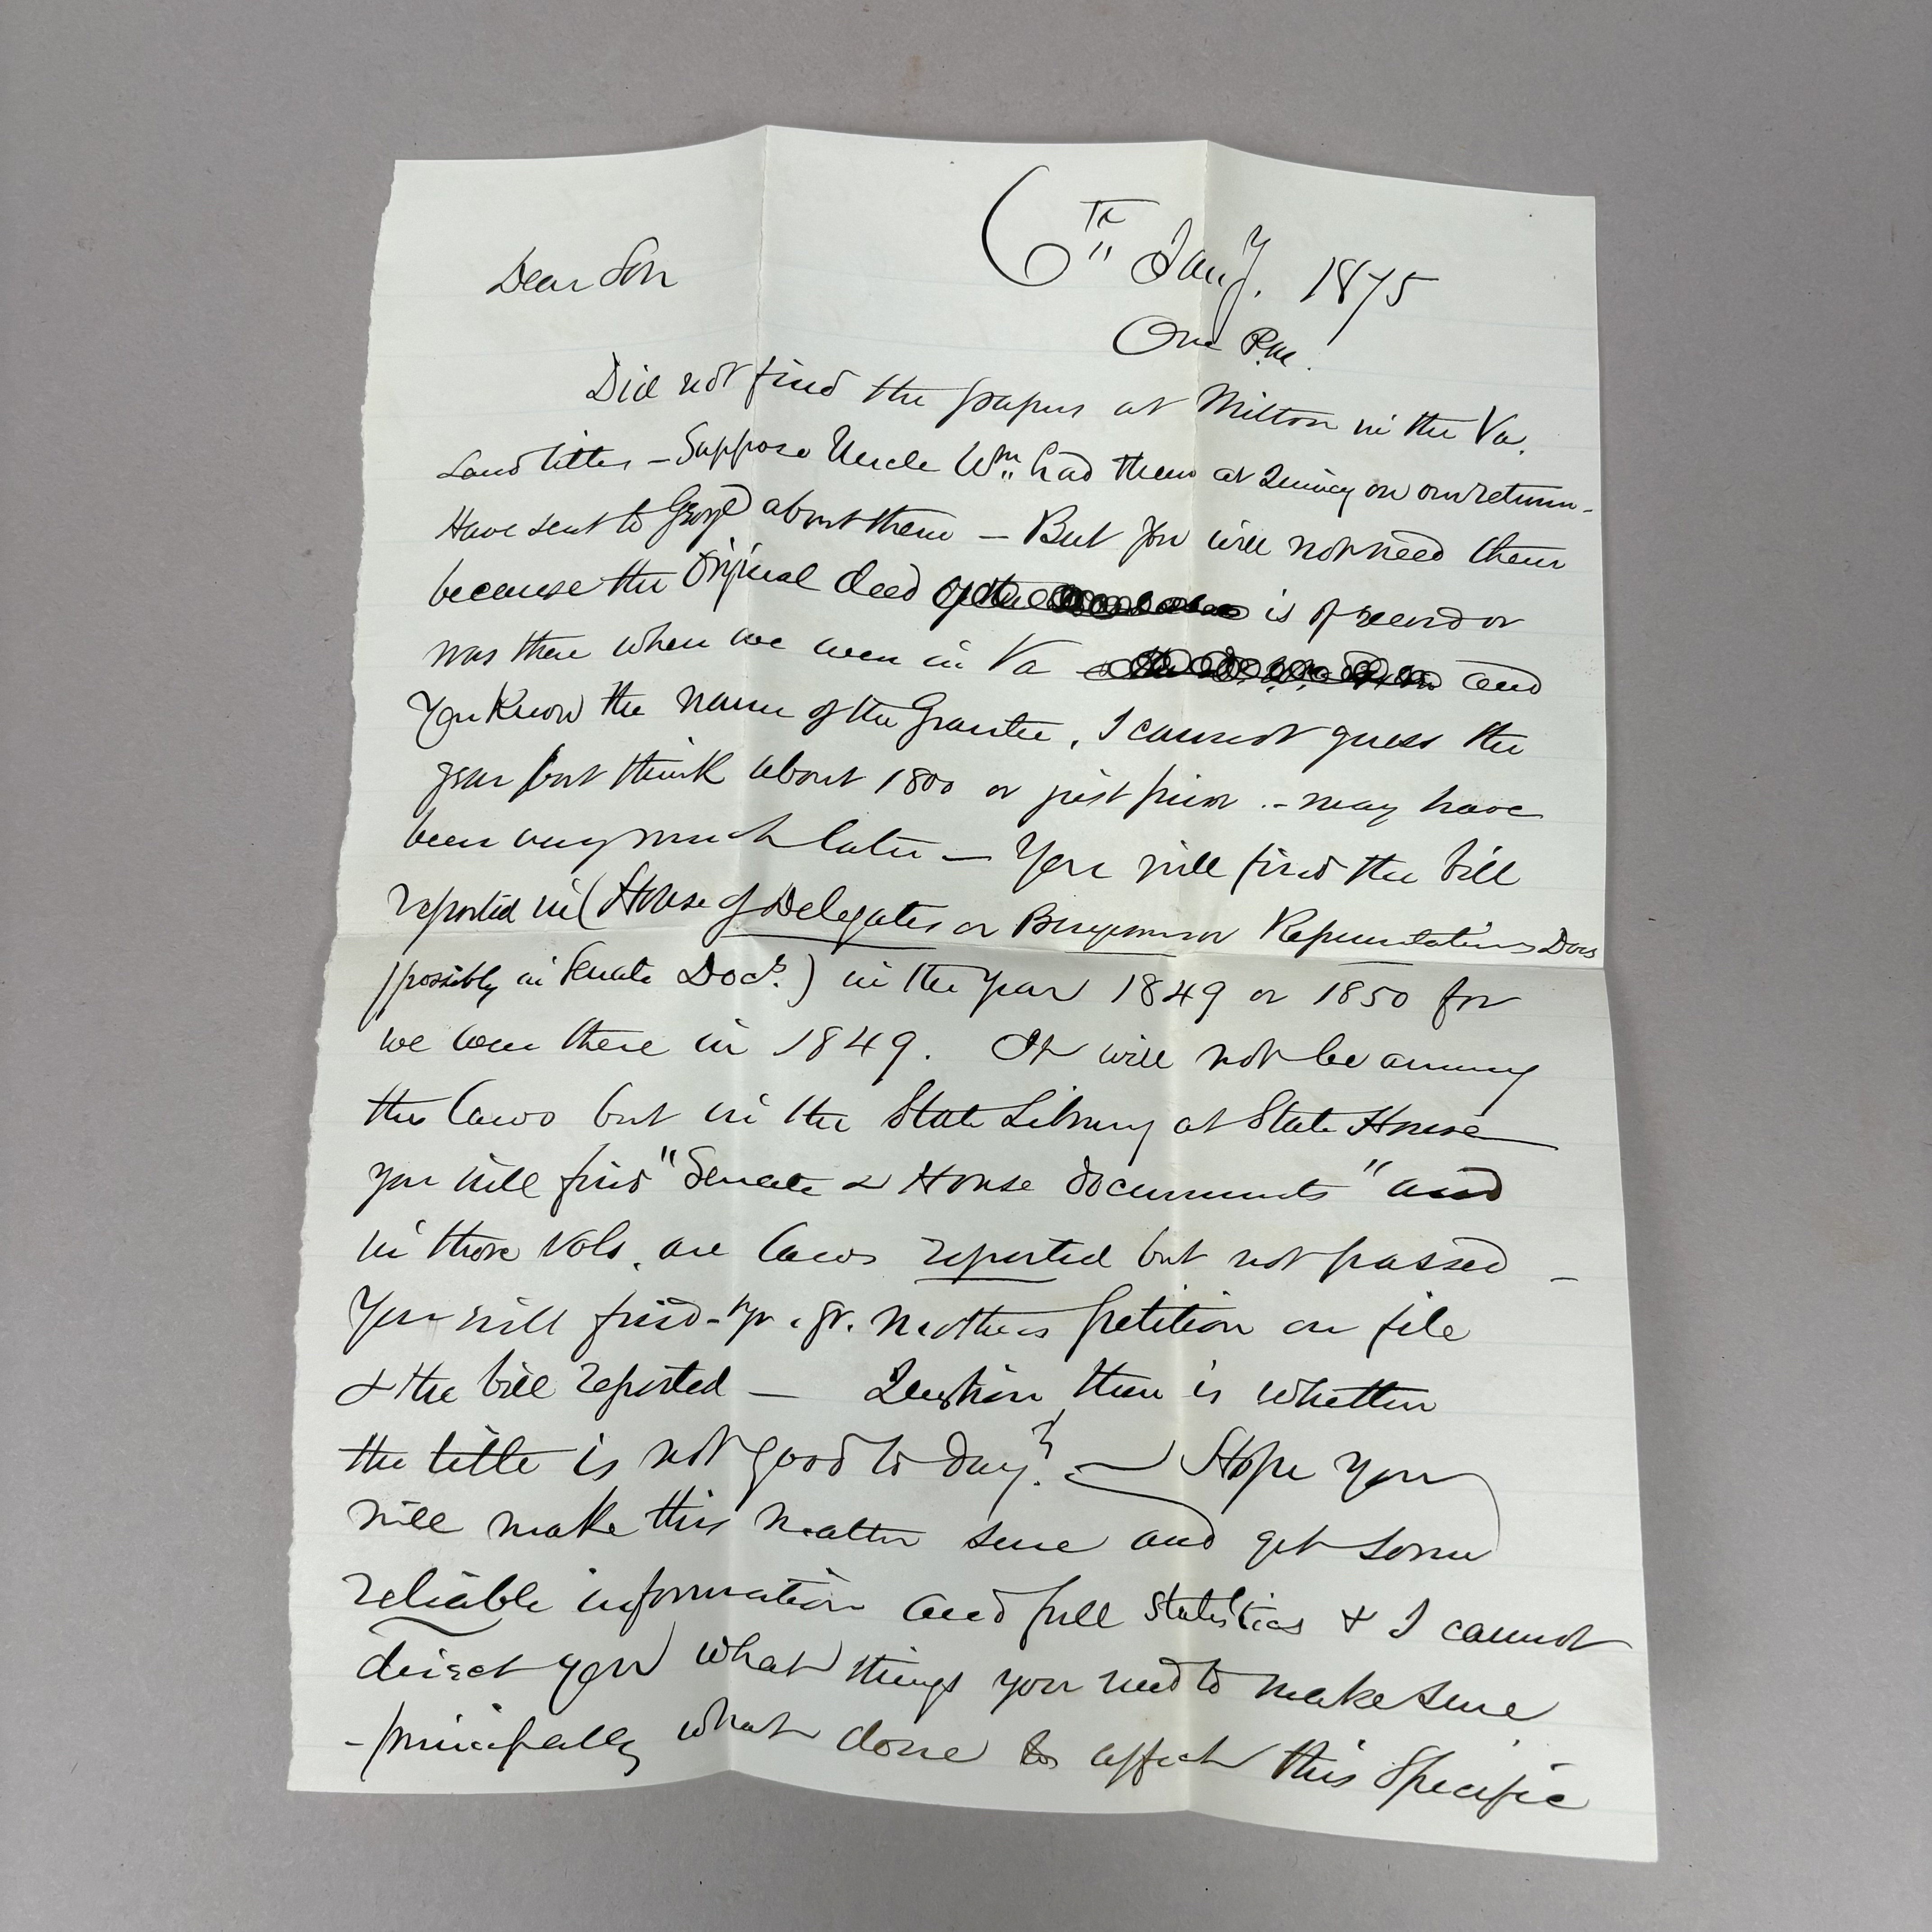 6th Jany. 1875
Dear Son
One P.M.
Did not find the papers at Milton in the Va.
Land titles – Suppose Uncle Wm had them at Quincy on our return –
Have sent to George about them – But you will not need them
because the Original deed of the is of record or
was there when we were in Va and
You Know the name of the Grantee, I cannot guess the
year but think about 1800 or just prior. – may have
been very much later – You will find the bill
reported in (House of Delegates or Burgesses or Representatives Docs
possibly in Senate Docs.) in the year 1849 or 1850 for
we were there in 1849. It will not be among
the laws but in the State Library at State House
you will find "Senate & House documents" and
in those Vols. are laws reported but not passed –
You will find – yr. gr. Mothers petition on file
& the bill reported – Question then is whether
the title is not good to day? – Hope you
will make this matter sure and get some
reliable information and full statistics & I cannot
direct you what things you need to make sure
– principally what done to affect this Specific